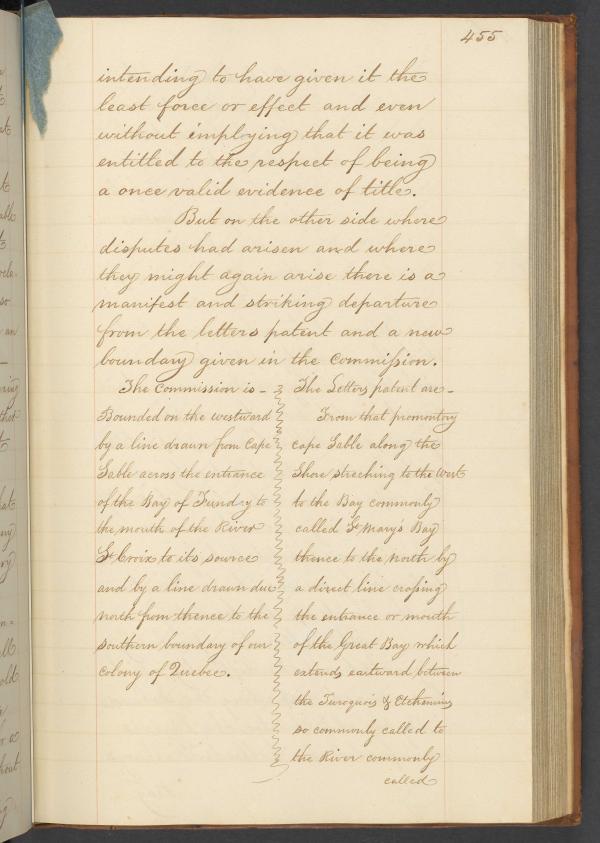 455
intending to have given it the
least force or effect and even
without employing that it was
entitled to the respect of being
a once valid evidence of title.
But on the other side where
disputes had arisen and where
they might again arise there is a
manifest and striking departure
from the letters patent and a new
boundary given in the Commission.
The Commission is -
Bounded on the westward
by a line drawn from Cape
Sable across the entrance
of the Bay of Fundy to
the mouth of the River
St Croix to its source
and by a line drawn due
north from thence to the
southern boundary of our
colony of Quebec.
The Letters patent are -
From that promontory
cape Sable along the
Shore streching to the West
to the Bay commonly
called St Mary's Bay
thence to the north by
a direct line crossing
the entrance or mouth
of the Great Bay which
extends eastward between
the Turoquois & Etchemins
so commonly called to
the River commonly
called